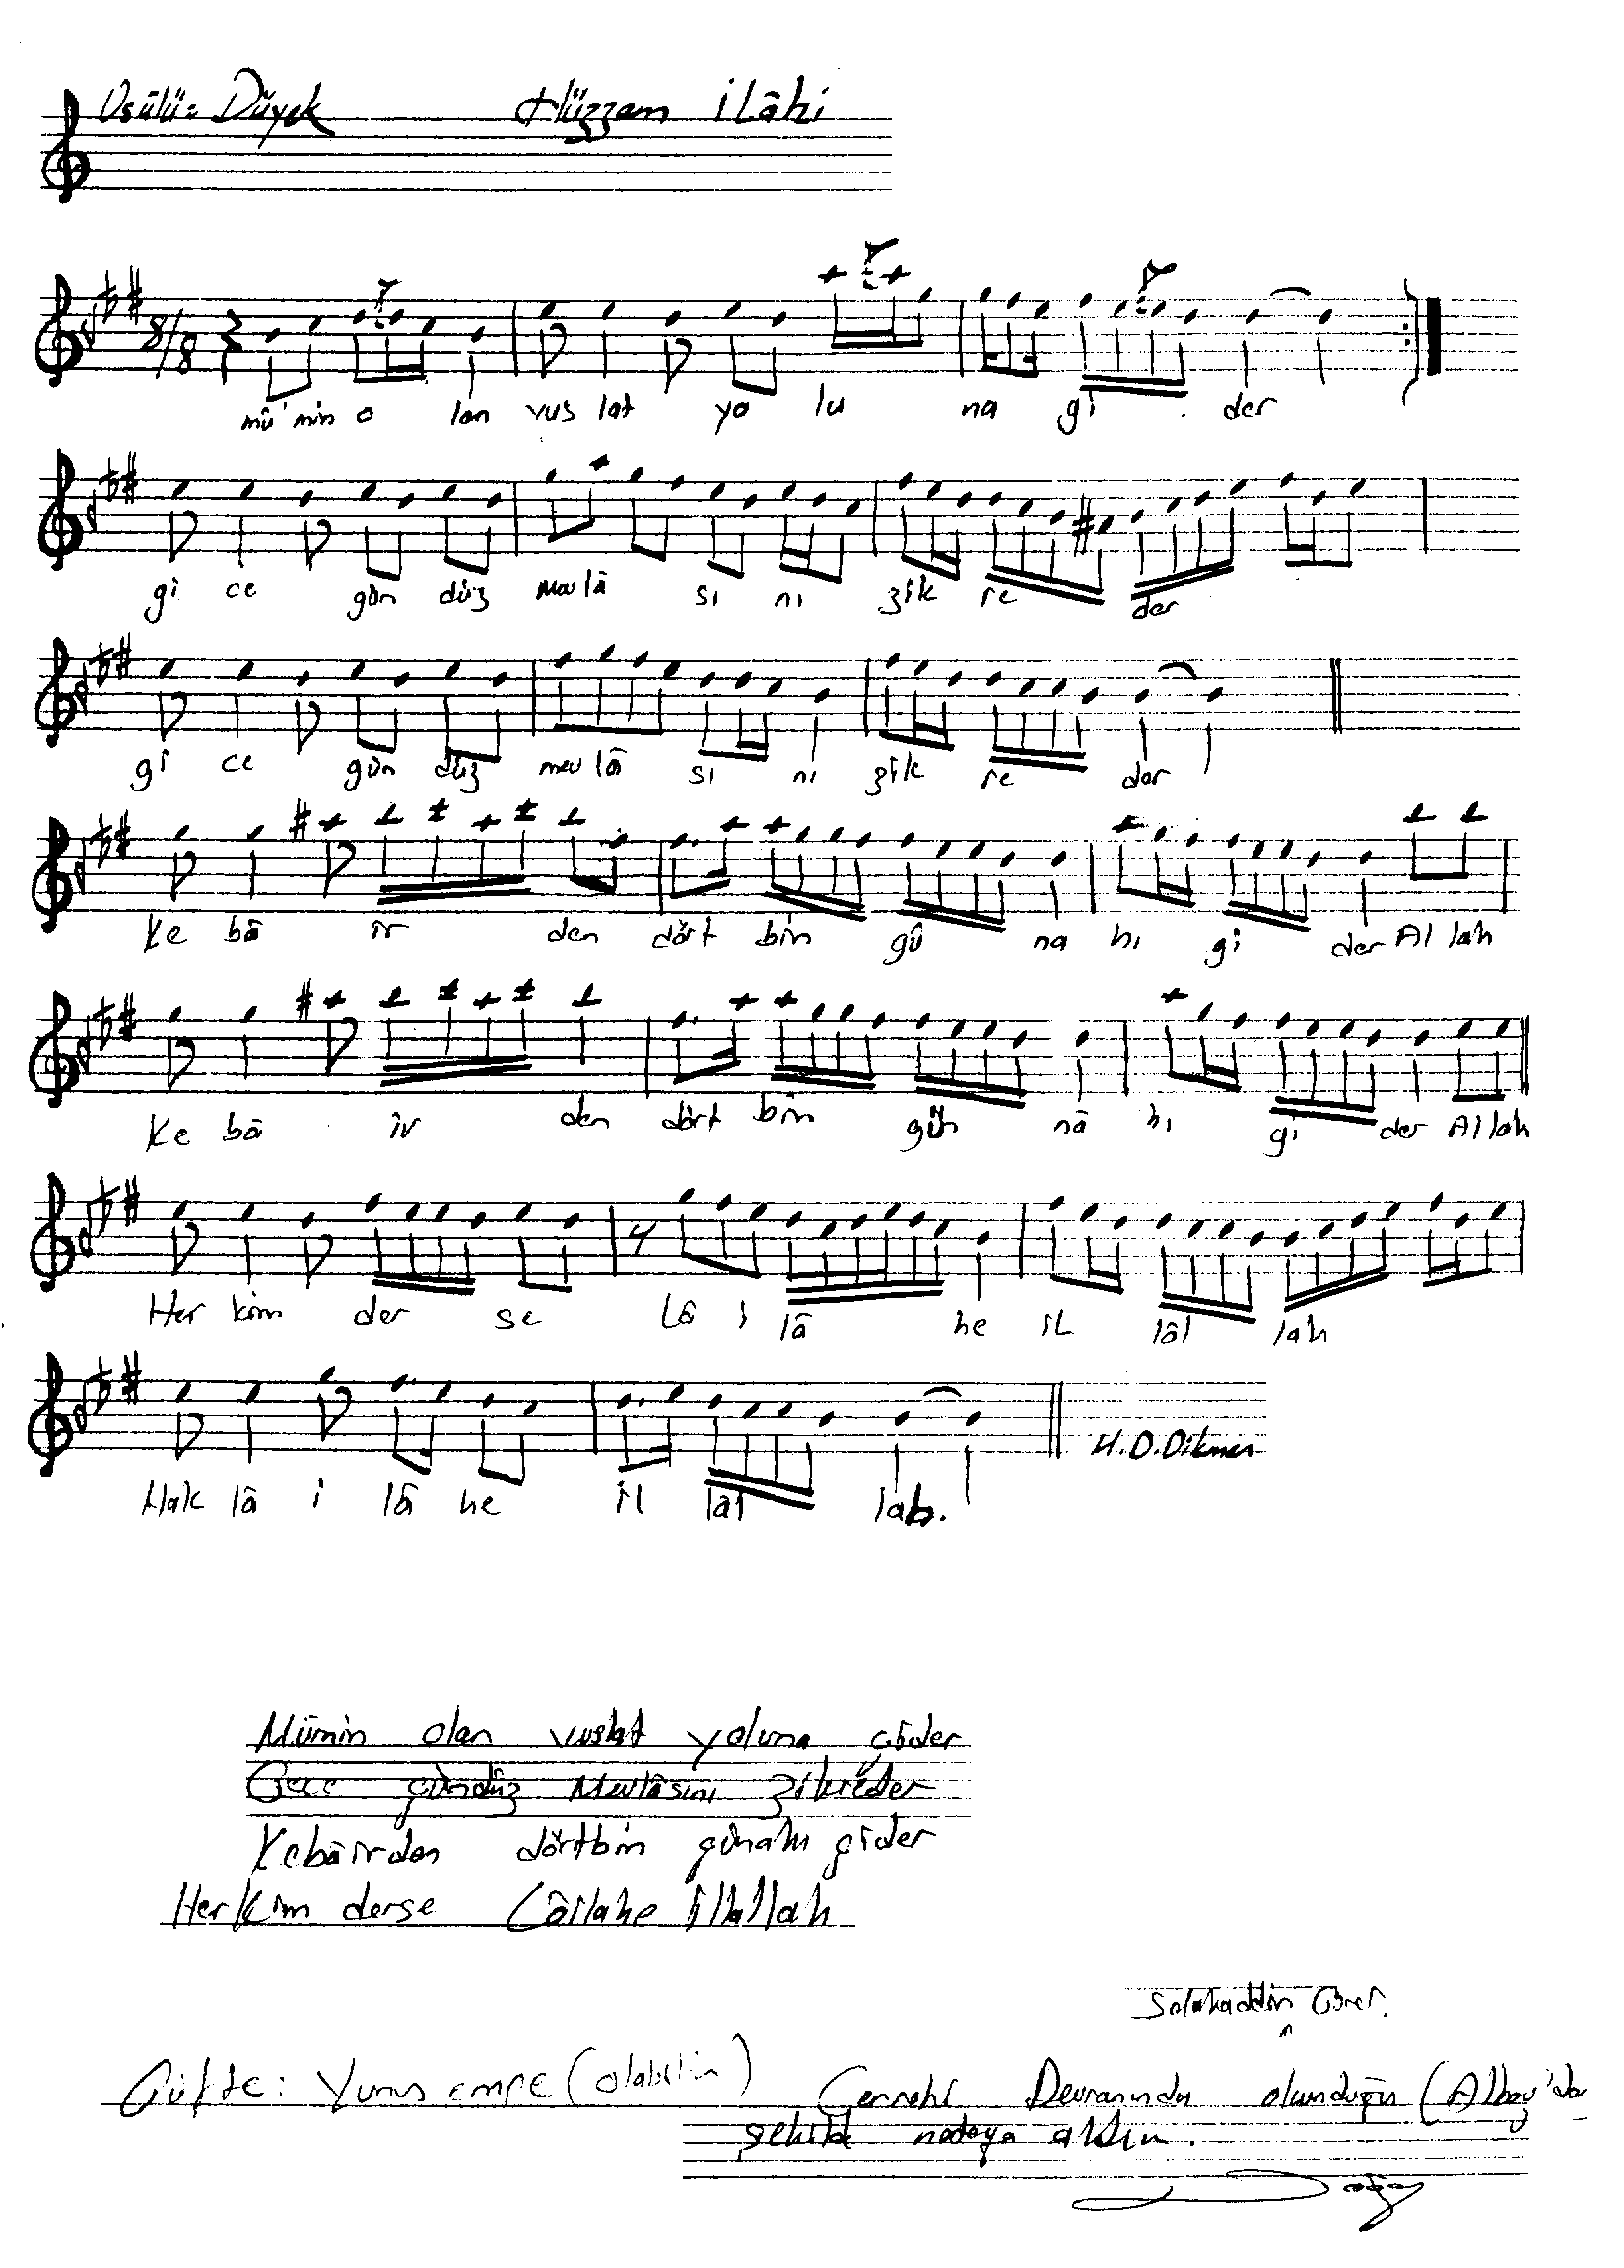 Usûlü: Düyek Hüzzam ilâhi
8/8
mü'min o lan vus lat yo lu na gi der
gi ce gün düz mev lâ sı nı zik re der
gi ce gün düz mev lâ sı nı zik re der
Ke bâ ir den dört bin gü na hı gi der Al lah
Ke bâ ir den dört bin gün nâ hı gi der Al lah
Her kim der se lâ i lâ he il lâl lah
H.D.Dikmen
Hak lâ i lâ he il lâl lah.
Mümin olan vuslat yoluna gider
Gece gündüz Mevlâsını zikreder
Kebâirden dörtbin günahı gider
Her kim derse Lâilahe illallah
Salahaddin Gürer.
Güfte: Yunus emre (olabilir) Cerrahi Devranında olunduğu (Albay'dan
şekilde notaya aldım.